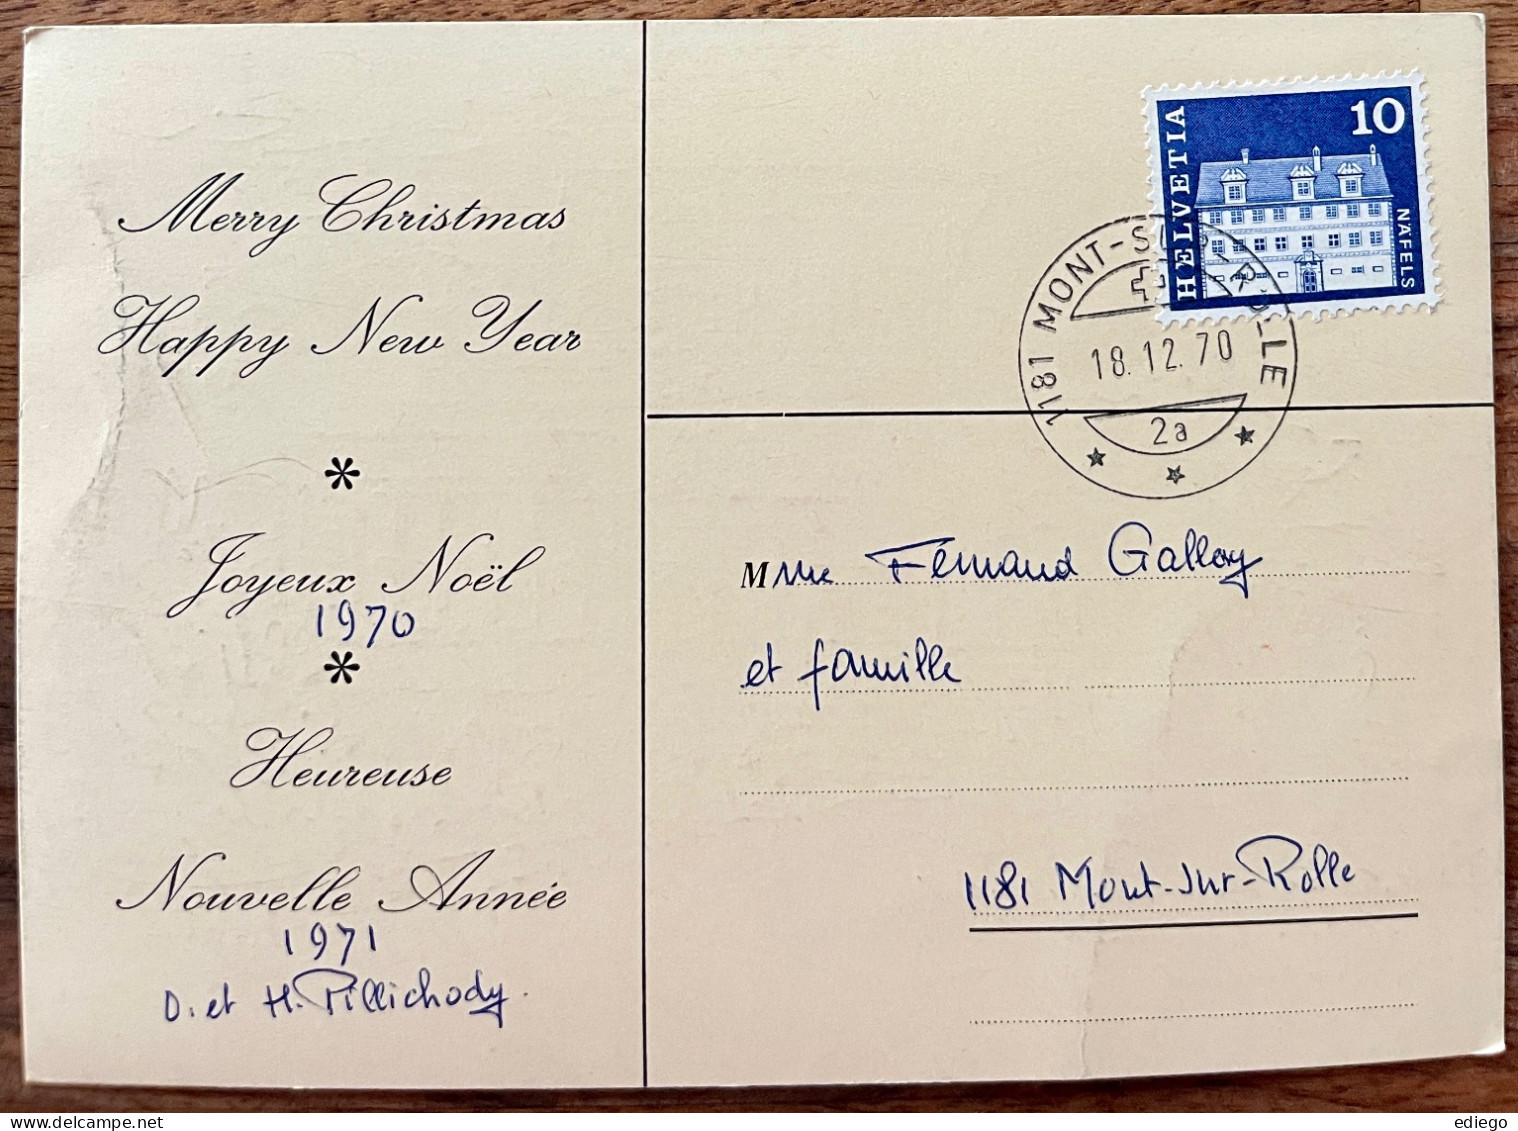 Merry Christmas
Happy New Year
*
Joyeux Noël
1970
*
Heureuse
Nouvelle Année
1971
D. et H. Pillichody.
HELVETIA
10
NÄFELS
1181 MONT-SUR-ROLLE
18.12.70
2a
Mme Fernand Gallay
et famille
1181 Mont-sur-Rolle
ediego